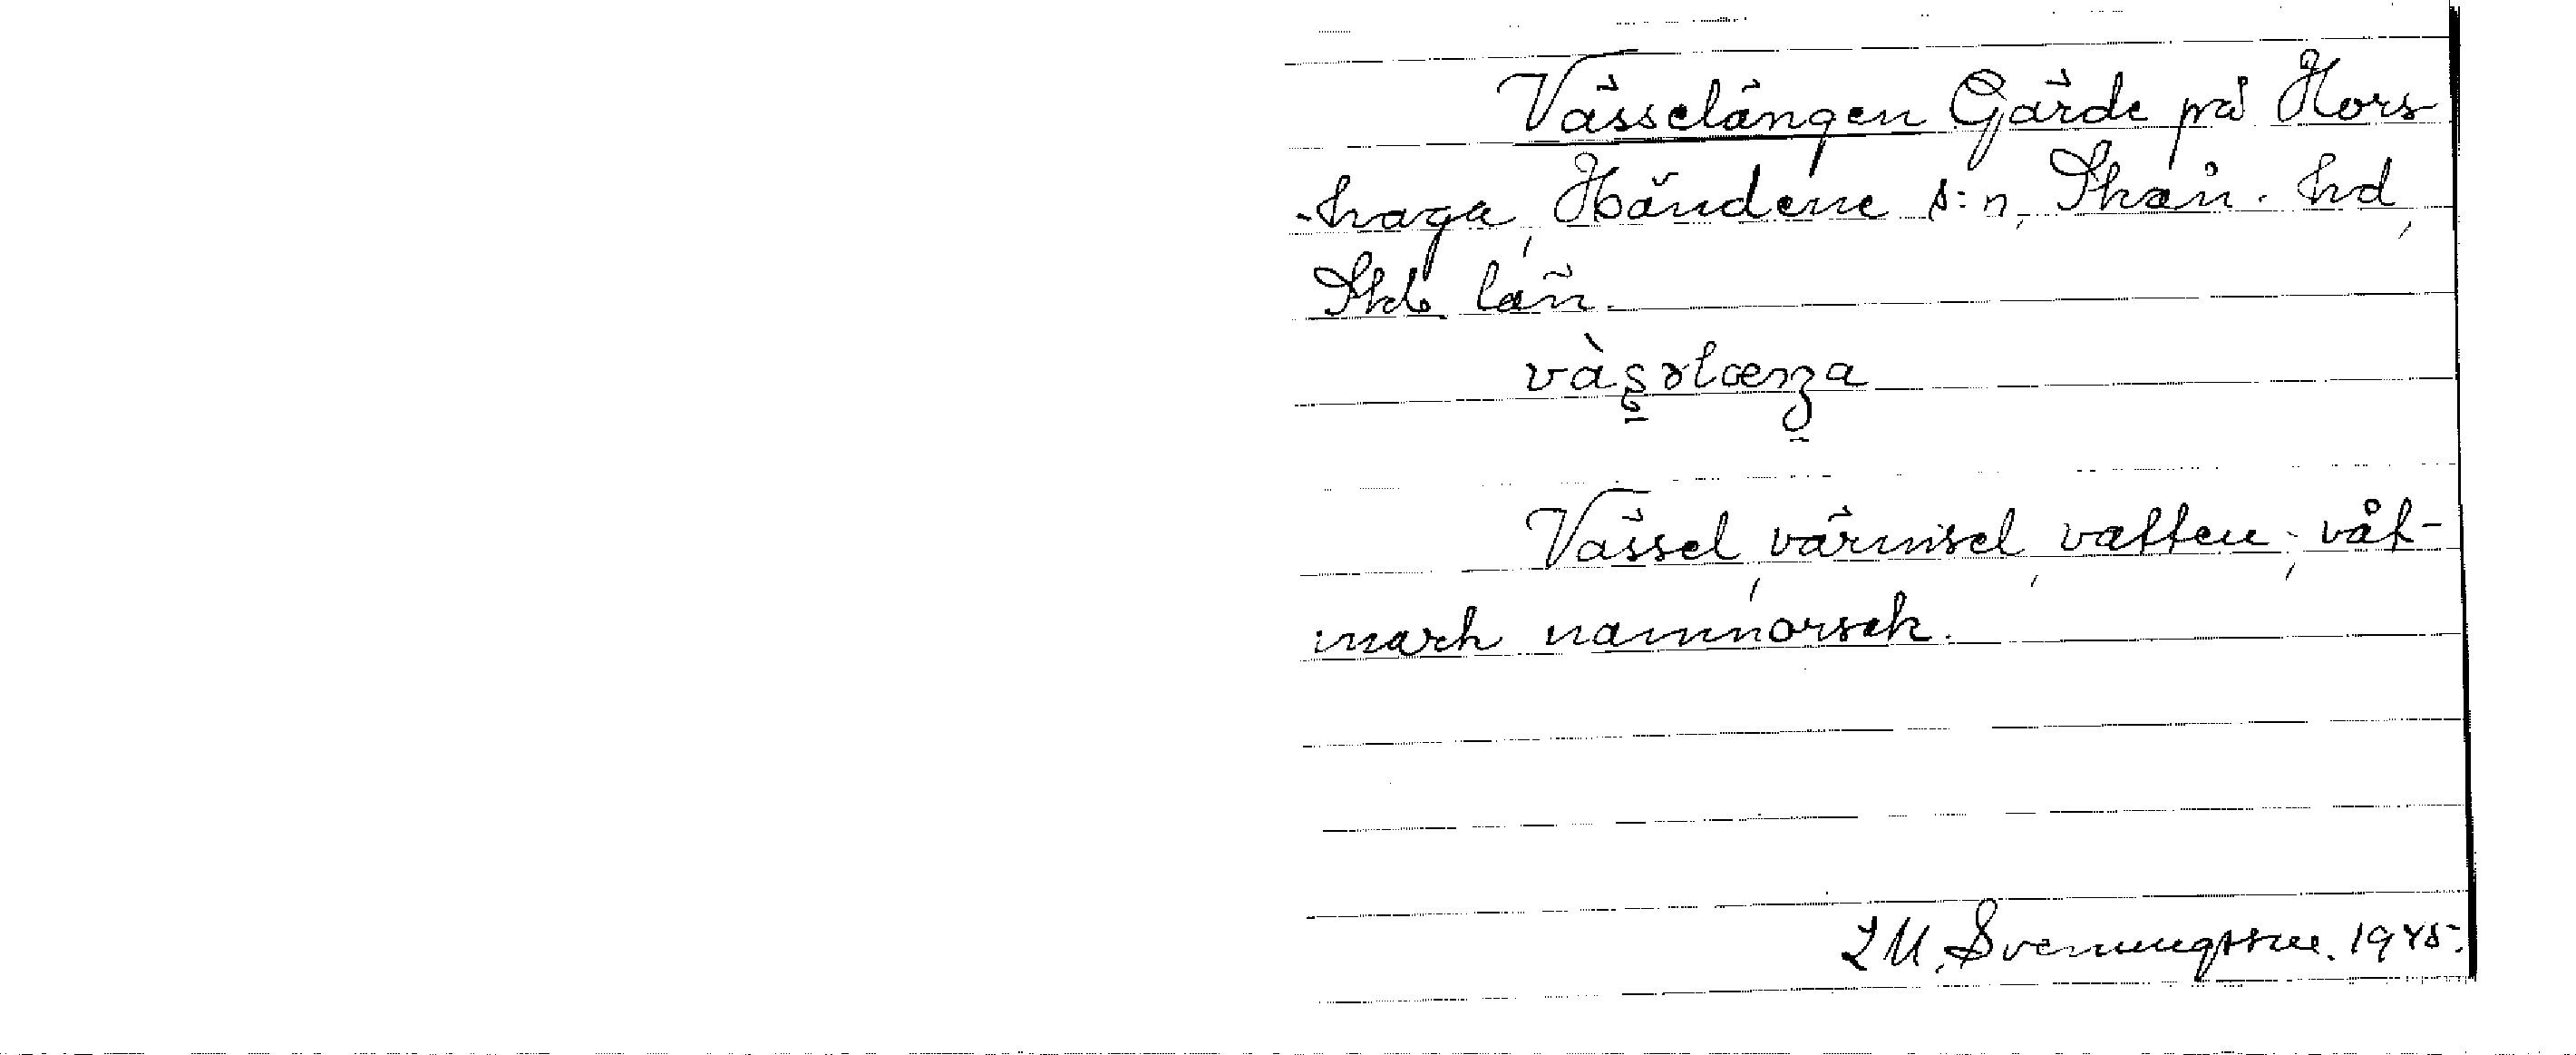 Vässelängen Gärde på Hors
-haga, Händene s:n, Skån. hd,
Skb. län.
Vässel, värmsel, vatten; våt-
mark namnorsak.
L M. Svenungsson. 1945.